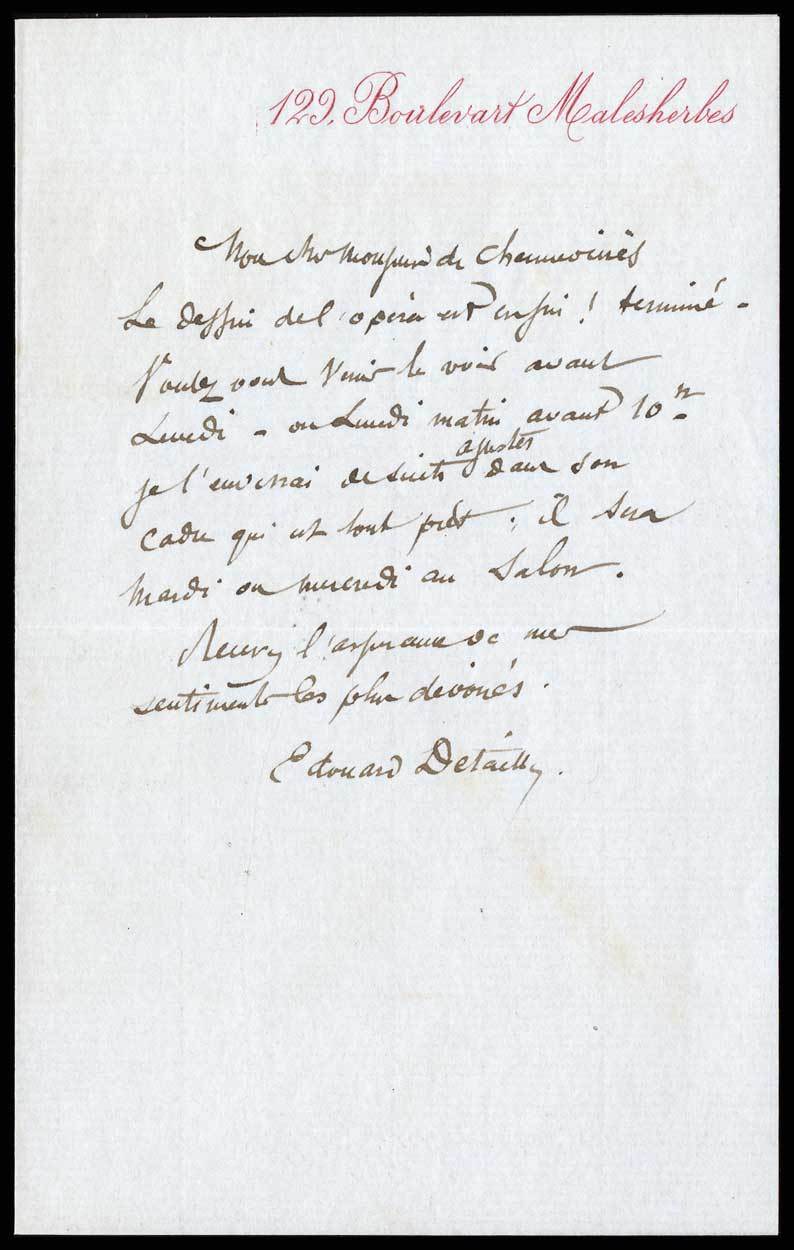 129, Boulevart Malesherbes
Mon cher Monsieur de Chennevières
Le dessin de l'opéra est enfin ! terminé -
Voulez vous venir le voir avant
Lundi - ou Lundi matin avant 10 h
je l'enverrai de suite ajuster dans son
cadre qui est tout prêt ; il sera
mardi ou mercredi au Salon.
Recevez l'assurance de mes
sentiments les plus dévoués.
Edouard Detaille.